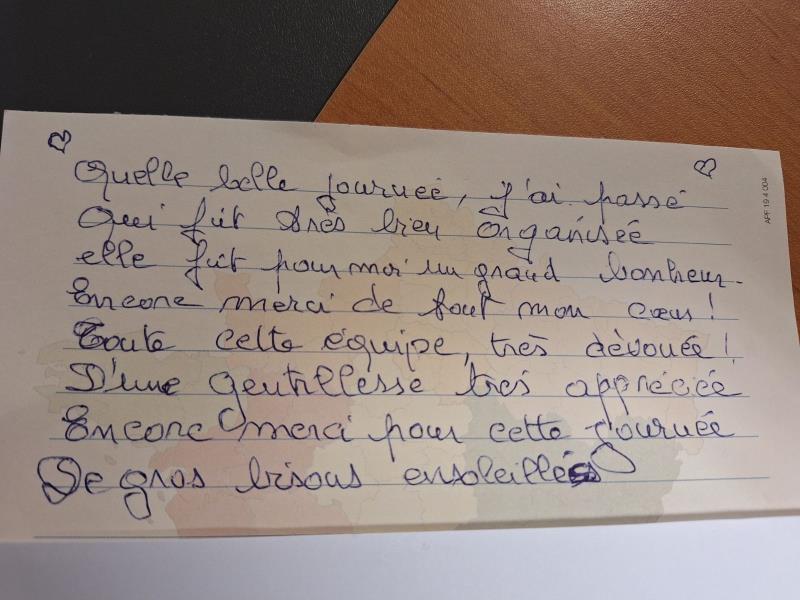 Quelle belle journée, j'ai passé
Qui fut très bien organisée
elle fut pour moi un grand bonheur.
Encore merci de tout mon cœur !
Toute cette équipe, très dévouée !
D'une gentillesse très appréciée
Encore merci pour cette journée
De gros bisous ensoleillés
APF 19 4 004